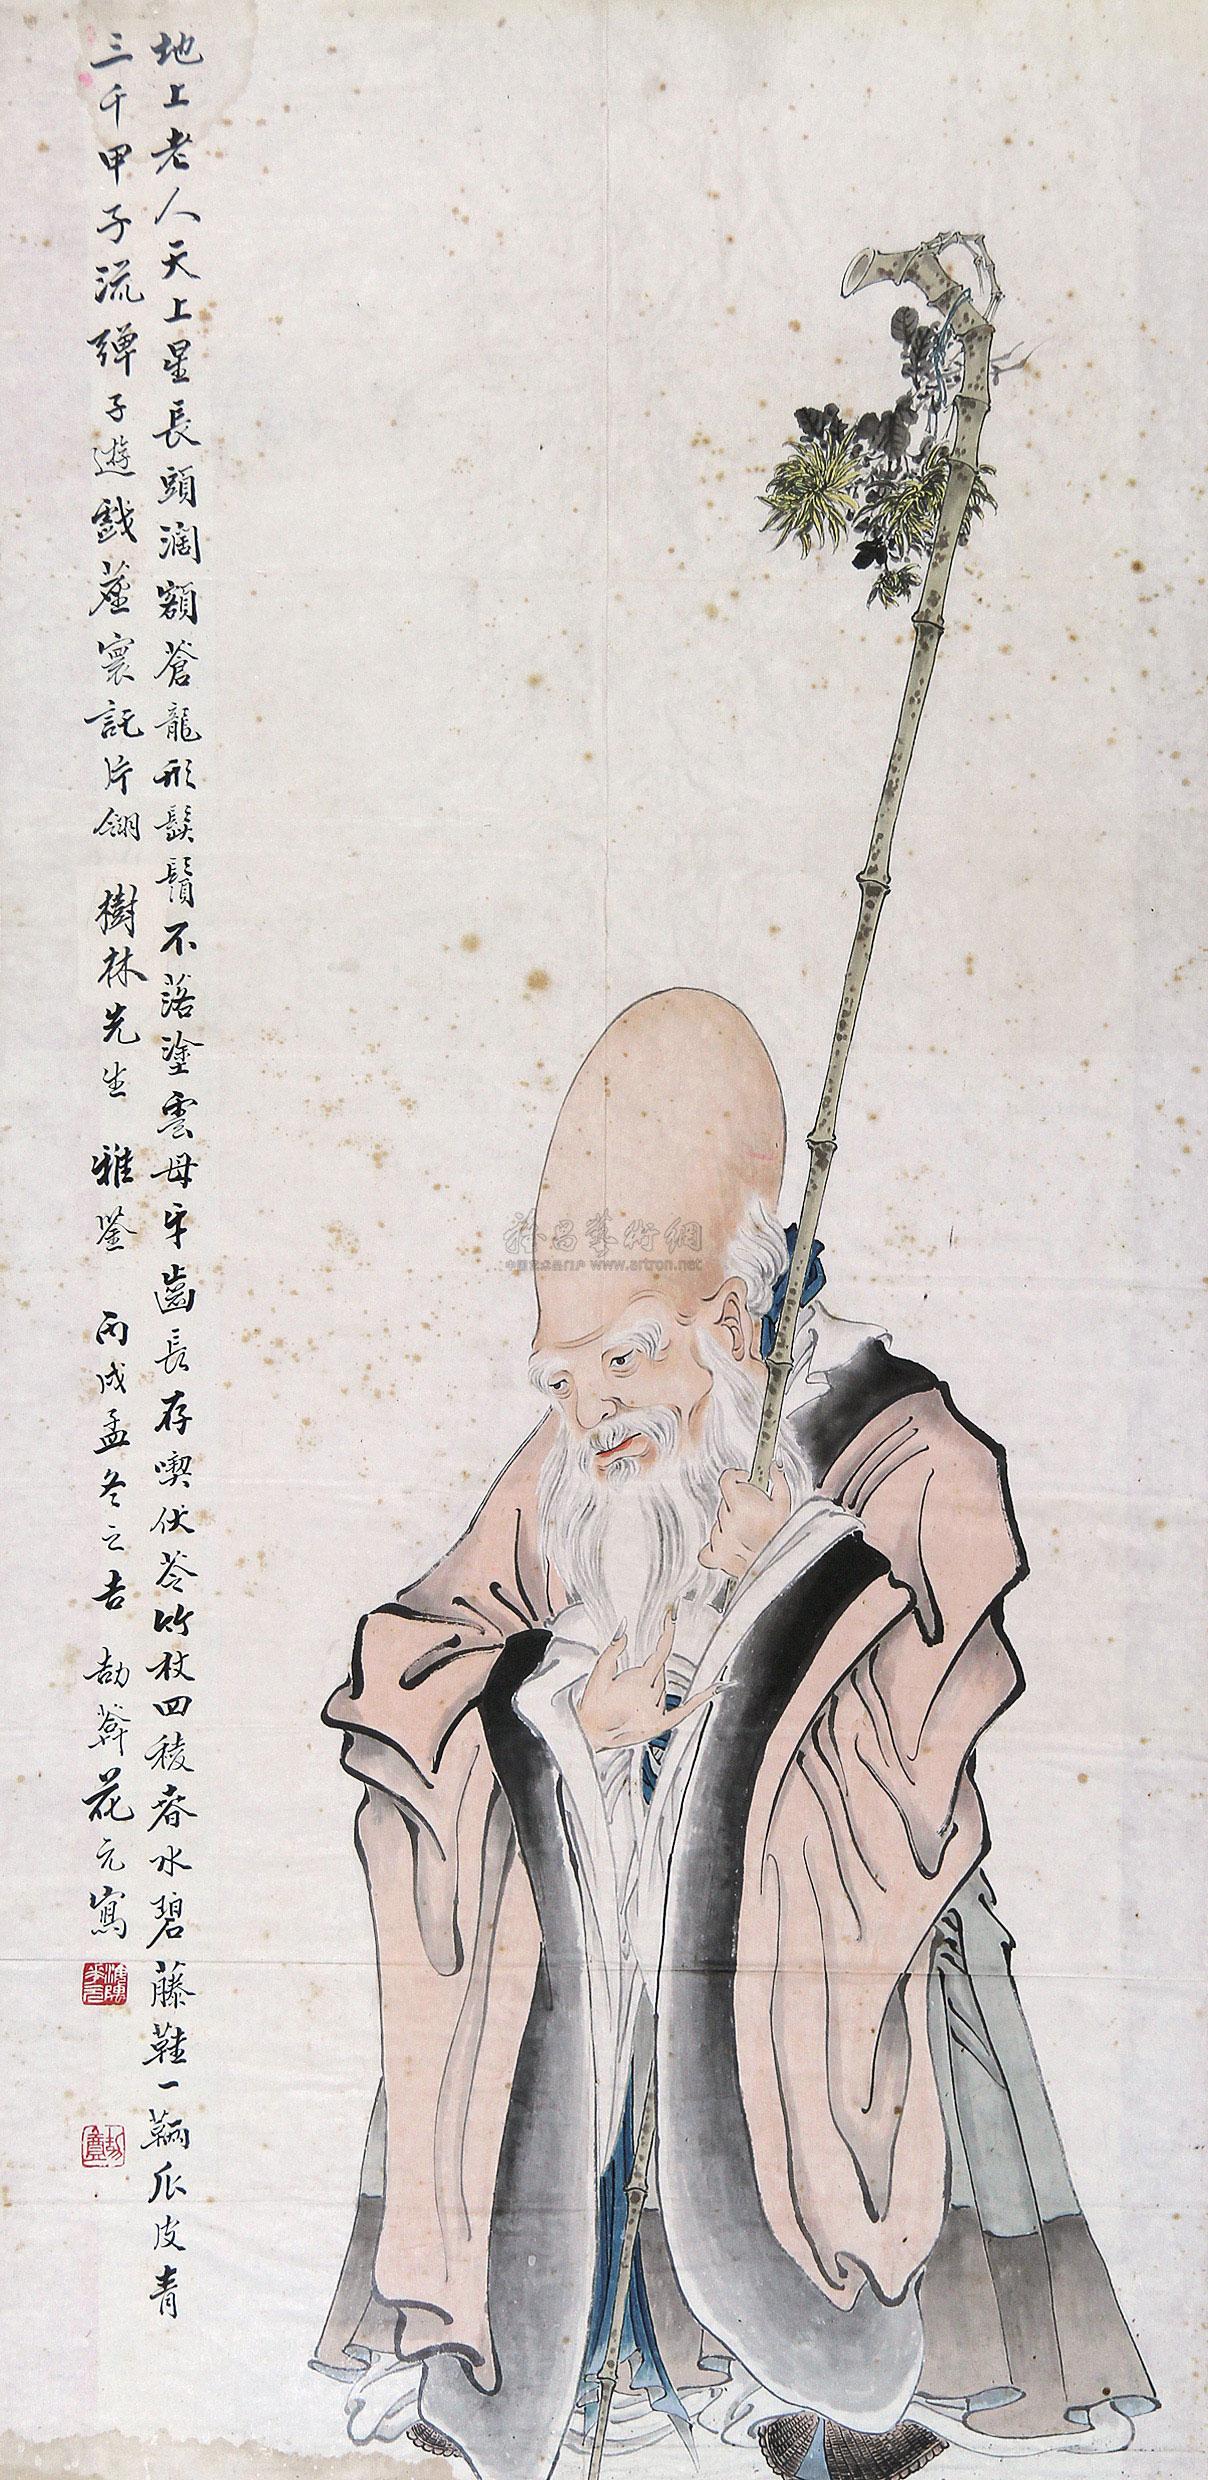 地上老人天上星長頭濶額蒼龍形髮鬚不落塗雲母牙齒長存喫伏苓竹杖四稜春水碧藤鞋一緉爪皮青
三千甲子流彈子遊戲塵寰託片翎 樹林先生 雅鉴 丙戌孟冬之吉 劫莽花元寫
雅昌藝術網
中国艺术品门户 www.artron.net